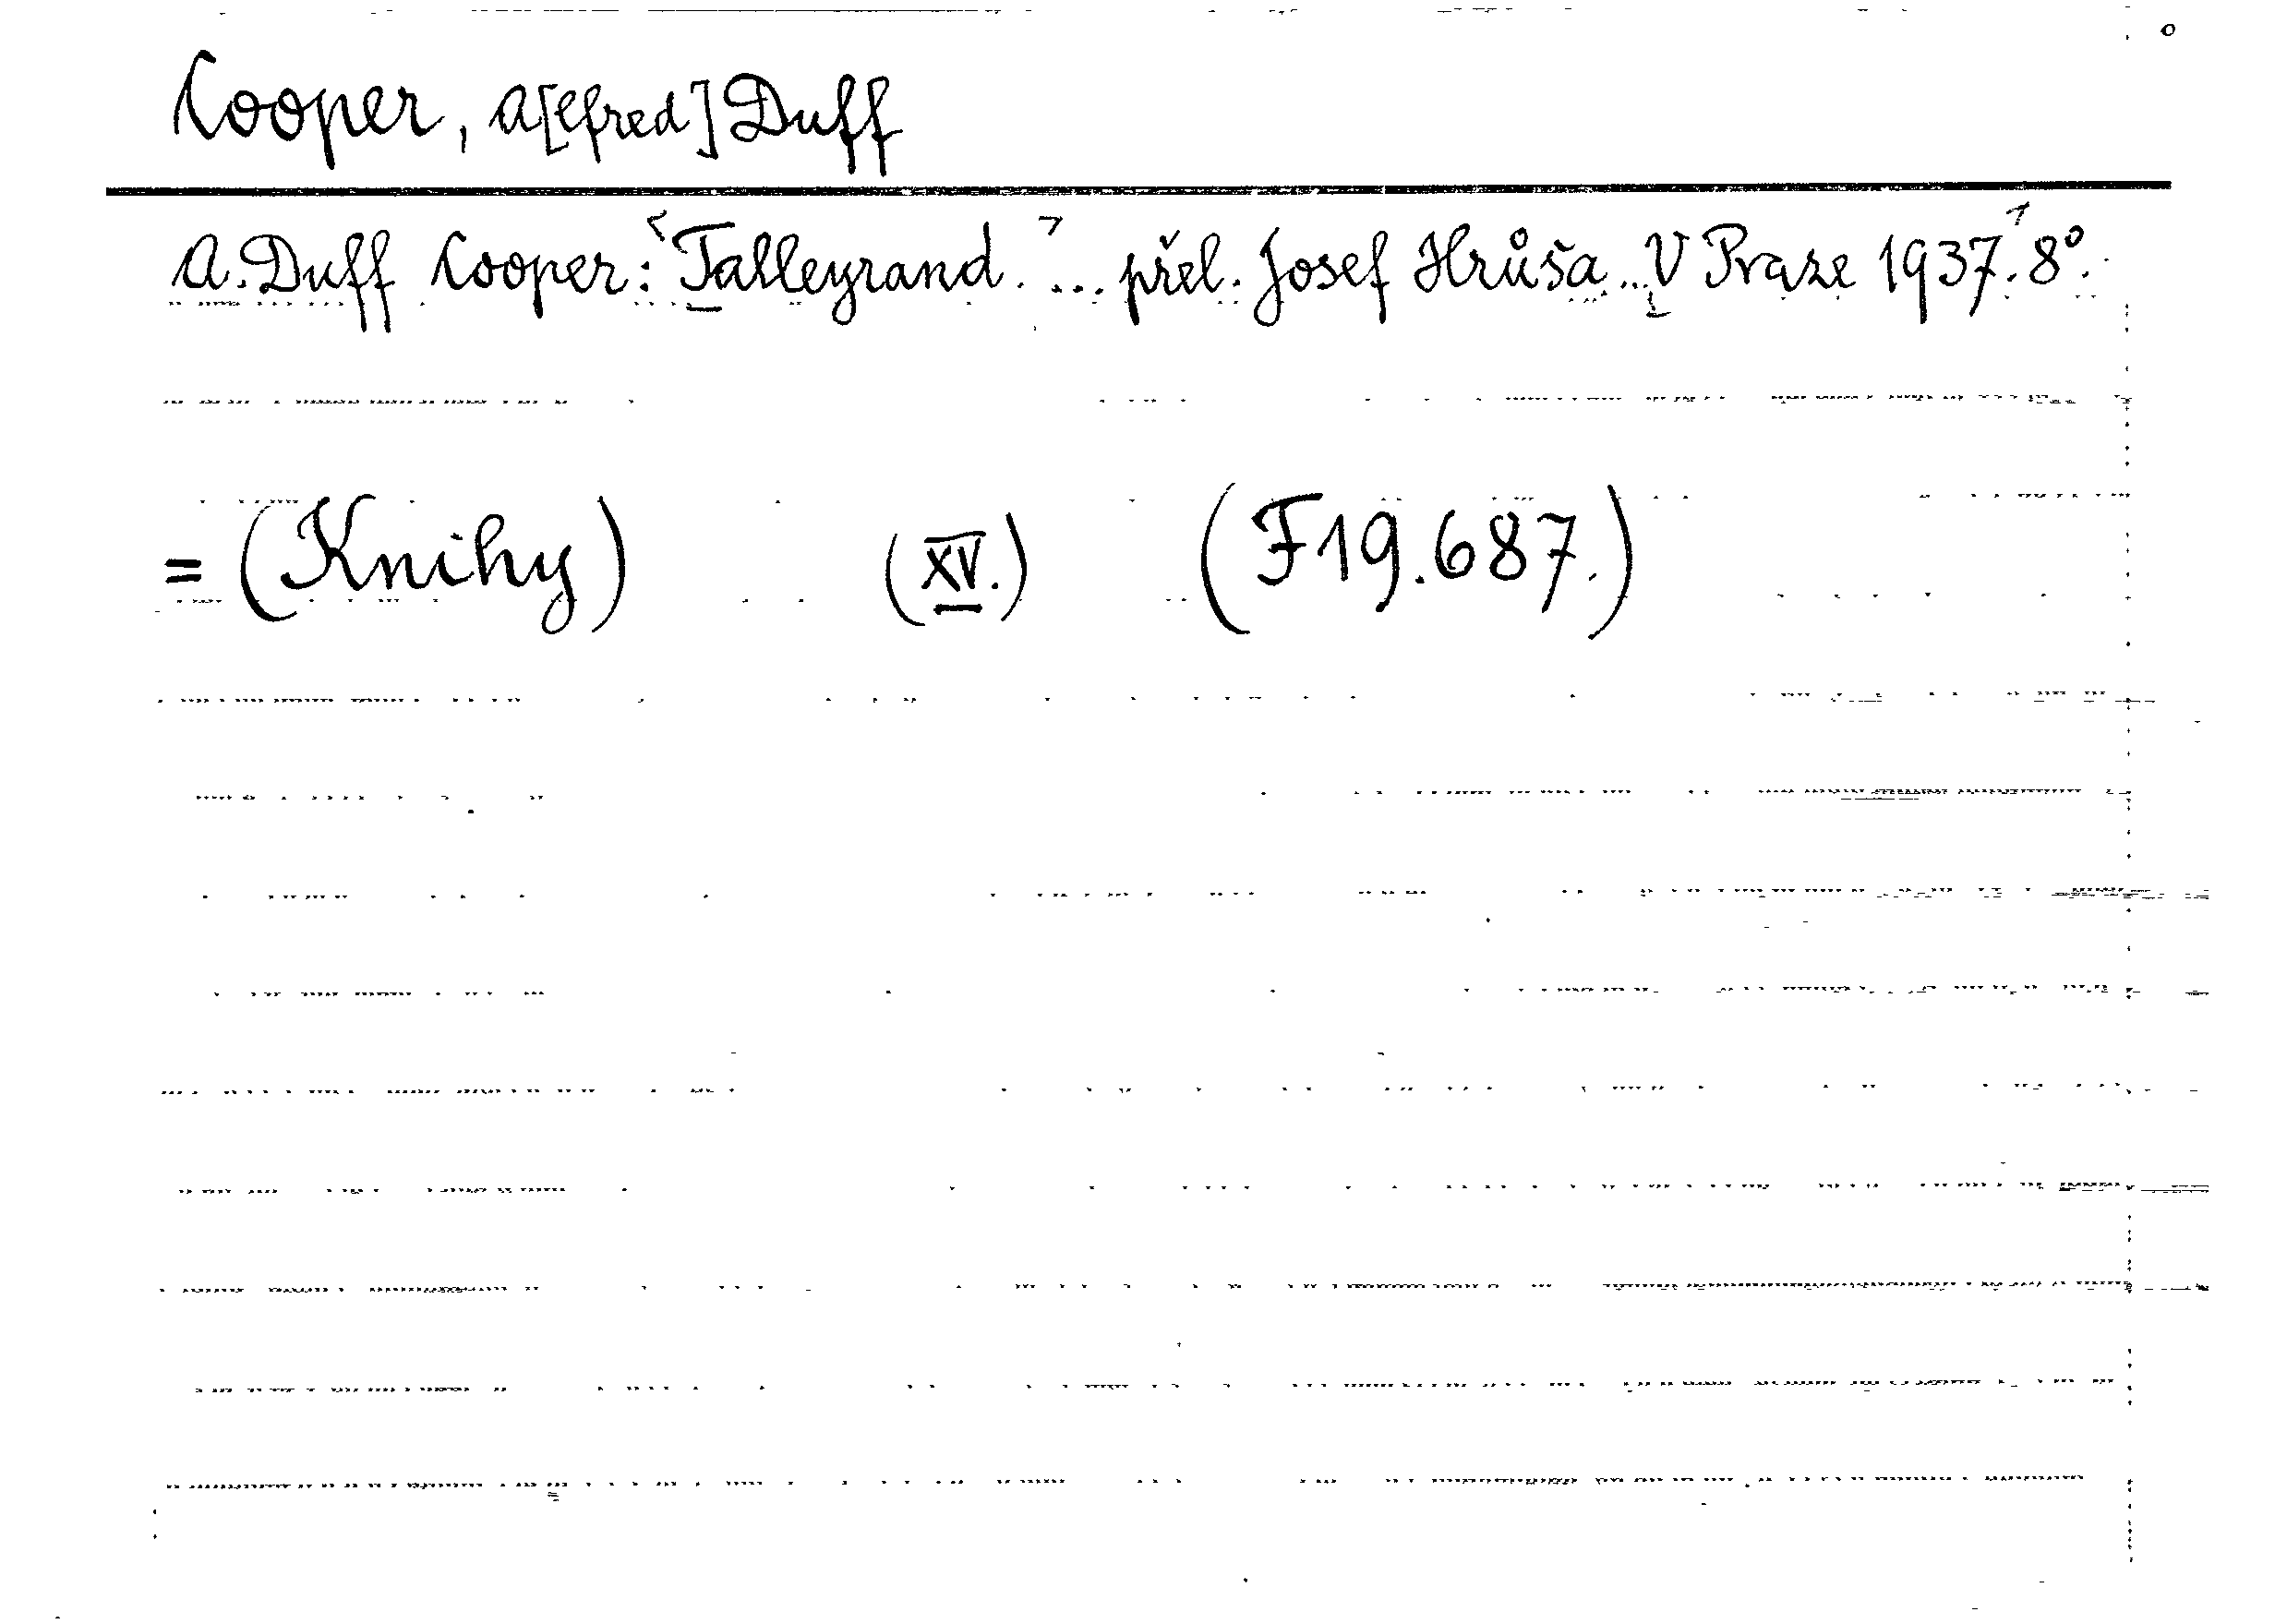 Cooper, A[lfred] Duff
A. Duff Cooper: Talleyrand. ... přel. Josef Hrůša... V Praze 1937. 8°.
= (Knihy) (XV.) (F19.687.)